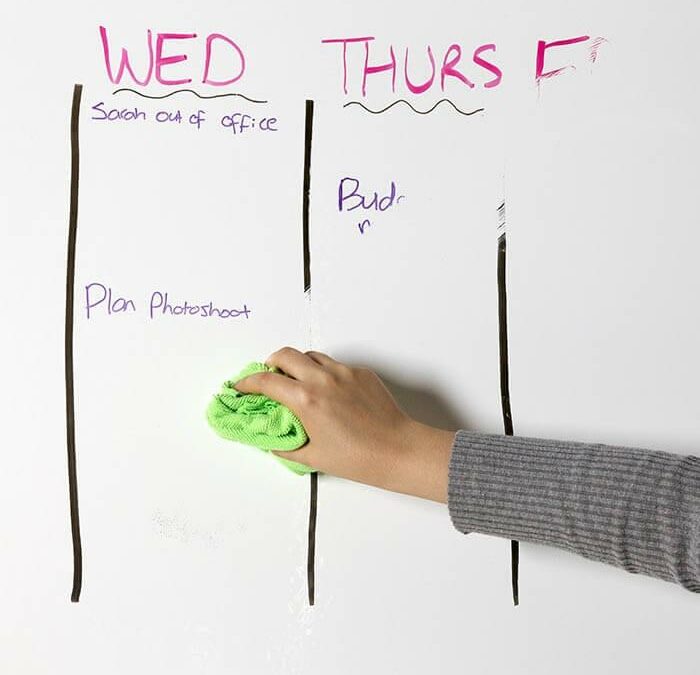 WED THURS
Sarah out of office
Plan Photoshoot